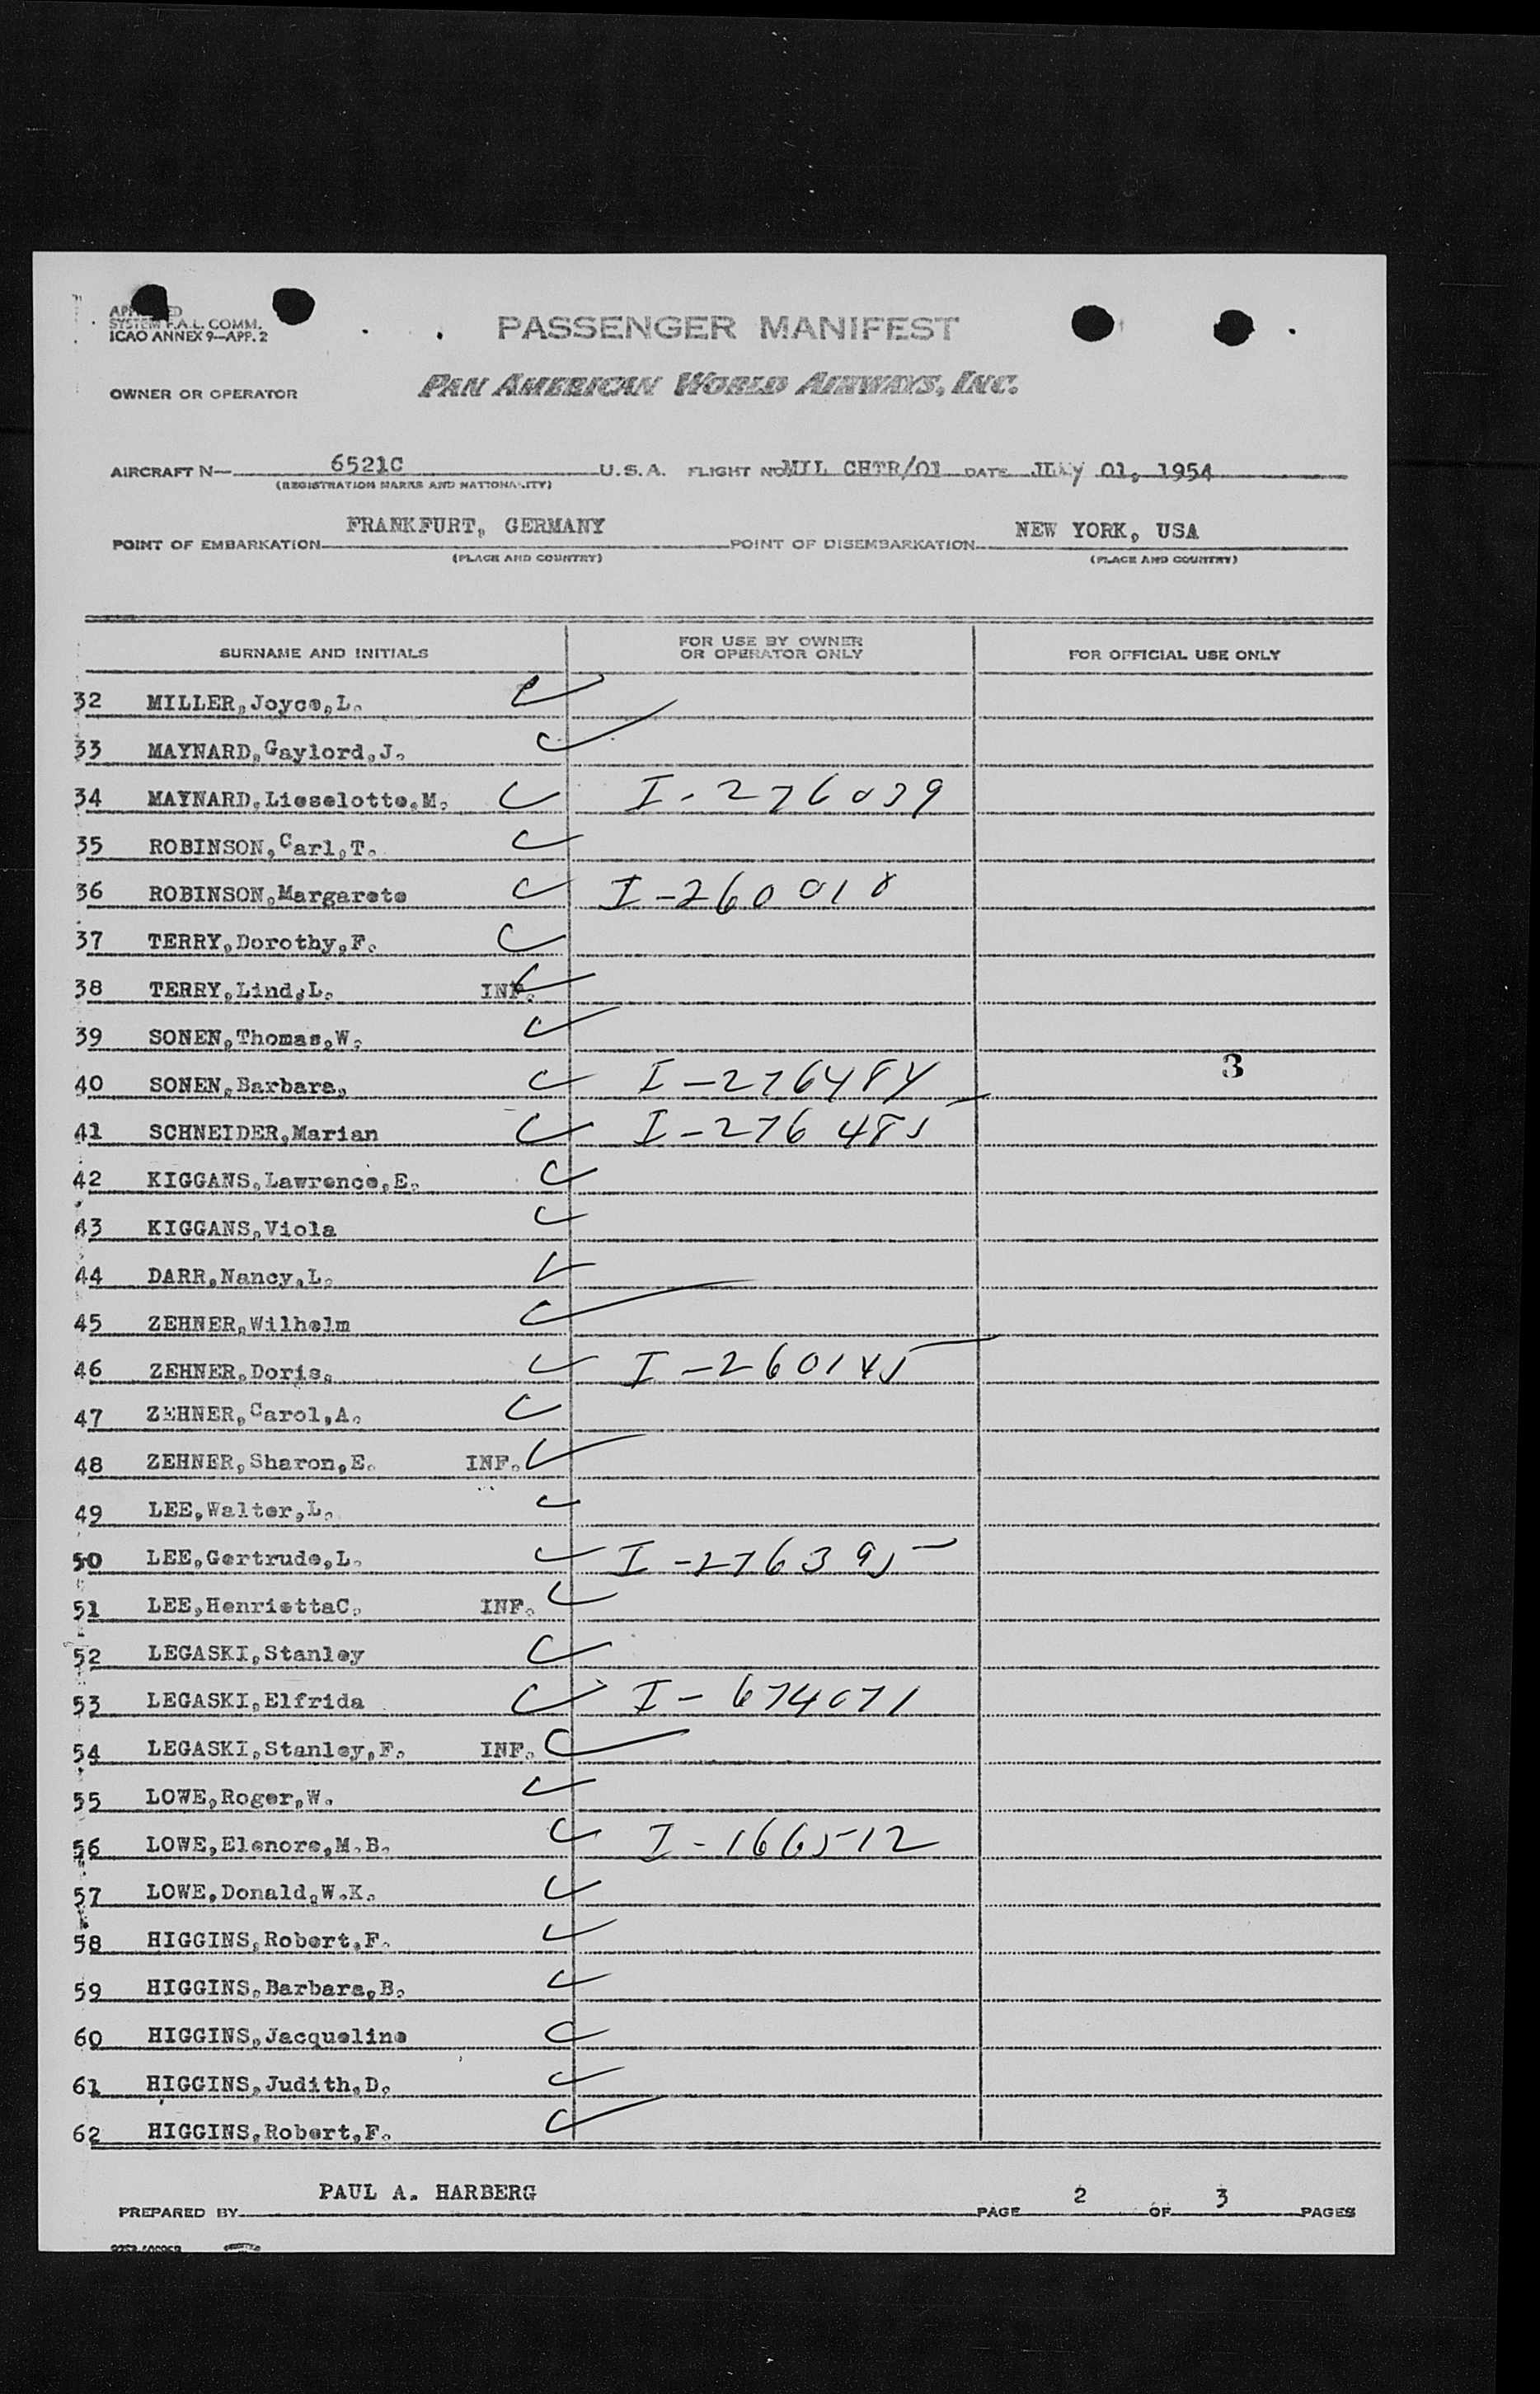 SYSTEM F.A.L. COMM.
ICAO ANNEX 9—APP. 2
PASSENGER MANIFEST
OWNER OR OPERATOR PAN AMERICAN WORLD AIRWAYS, INC.
AIRCRAFT N— 6521C U.S.A. FLIGHT NO MIL CHTR/01 DATE JULY 01, 1954
(REGISTRATION MARKS AND NATIONALITY)
POINT OF EMBARKATION FRANKFURT, GERMANY POINT OF DISEMBARKATION NEW YORK, USA
(PLACE AND COUNTRY) (PLACE AND COUNTRY)
SURNAME AND INITIALS FOR USE BY OWNER OR OPERATOR ONLY FOR OFFICIAL USE ONLY
32 MILLER,Joyce,L.
33 MAYNARD,Gaylord,J.
34 MAYNARD,Lieselotte,M. I-276039
35 ROBINSON,Carl,T.
36 ROBINSON,Margarete I-260018
37 TERRY,Dorothy,F.
38 TERRY,Lind,L. INF.
39 SONEN,Thomas,W.
40 SONEN,Barbara, I-276484 3
41 SCHNEIDER,Marian I-276485
42 KIGGANS,Lawrence,E.
43 KIGGANS,Viola
44 DARR,Nancy,L.
45 ZEHNER,Wilhelm
46 ZEHNER,Doris, I-260145
47 ZEHNER,Carol,A.
48 ZEHNER,Sharon,E. INF.
49 LEE,Walter,L.
50 LEE,Gertrude,L. I-276395
51 LEE,HenriettaC. INF.
52 LEGASKI,Stanley
53 LEGASKI,Elfrida I-674071
54 LEGASKI,Stanley,F. INF.
55 LOWE,Roger,W.
56 LOWE,Elenore,M.B. I-166512
57 LOWE,Donald,W.K.
58 HIGGINS,Robert,F.
59 HIGGINS,Barbara,B.
60 HIGGINS,Jacqueline
61 HIGGINS,Judith,D.
62 HIGGINS,Robert,F.
PREPARED BY PAUL A. HARBERG PAGE 2 OF 3 PAGES